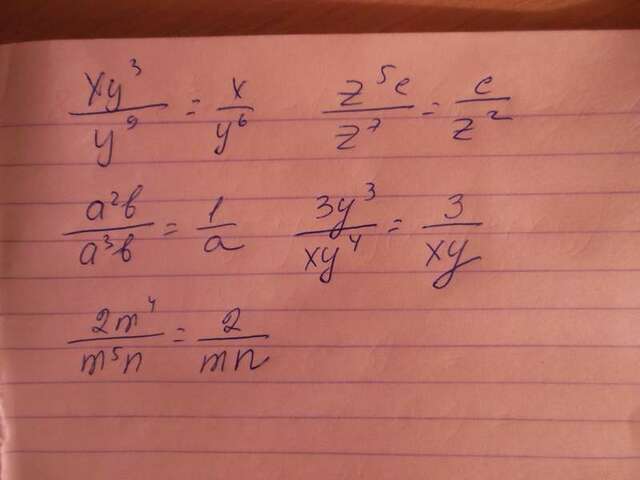 xy³/y⁹ = x/y⁶ z⁵c/z⁷ = c/z²
a²b/a³b = 1/a 3y³/xy⁴ = 3/xy
2m⁴/m⁵n = 2/mn